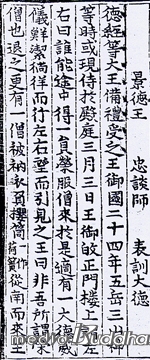 景德王 忠談師 表訓大德
德經等大王備禮受之王御國二十四年五岳三山神
等時或現侍於殿庭三月三日王御皈正門樓上謂左
右曰誰能途中得一員榮服僧來於是適有一大德威
儀鮮潔徜徉而行左右望而引見之王曰非吾所謂榮
僧也退之更有一僧被衲衣負櫻筒一作荷簣從南而來王